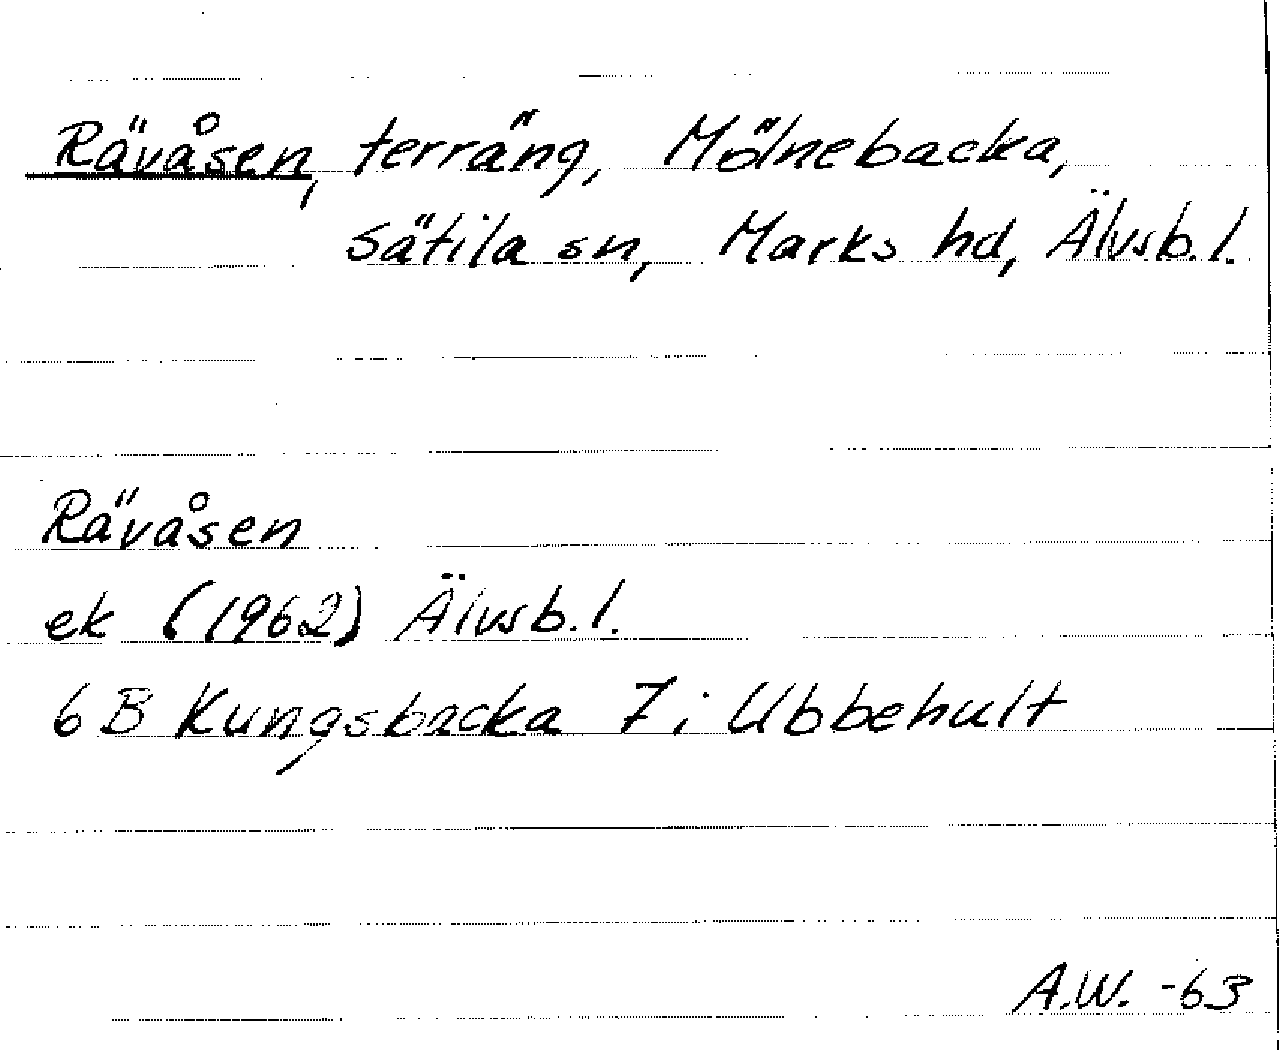 Rävåsen, terräng, Mölnebacka,
Sätila sn, Marks hd, Älvsb. l.
Rävåsen
ek (1962) Älvsb. l.
6 B Kungsbacka 7 i Ubbehult
A.W. -63